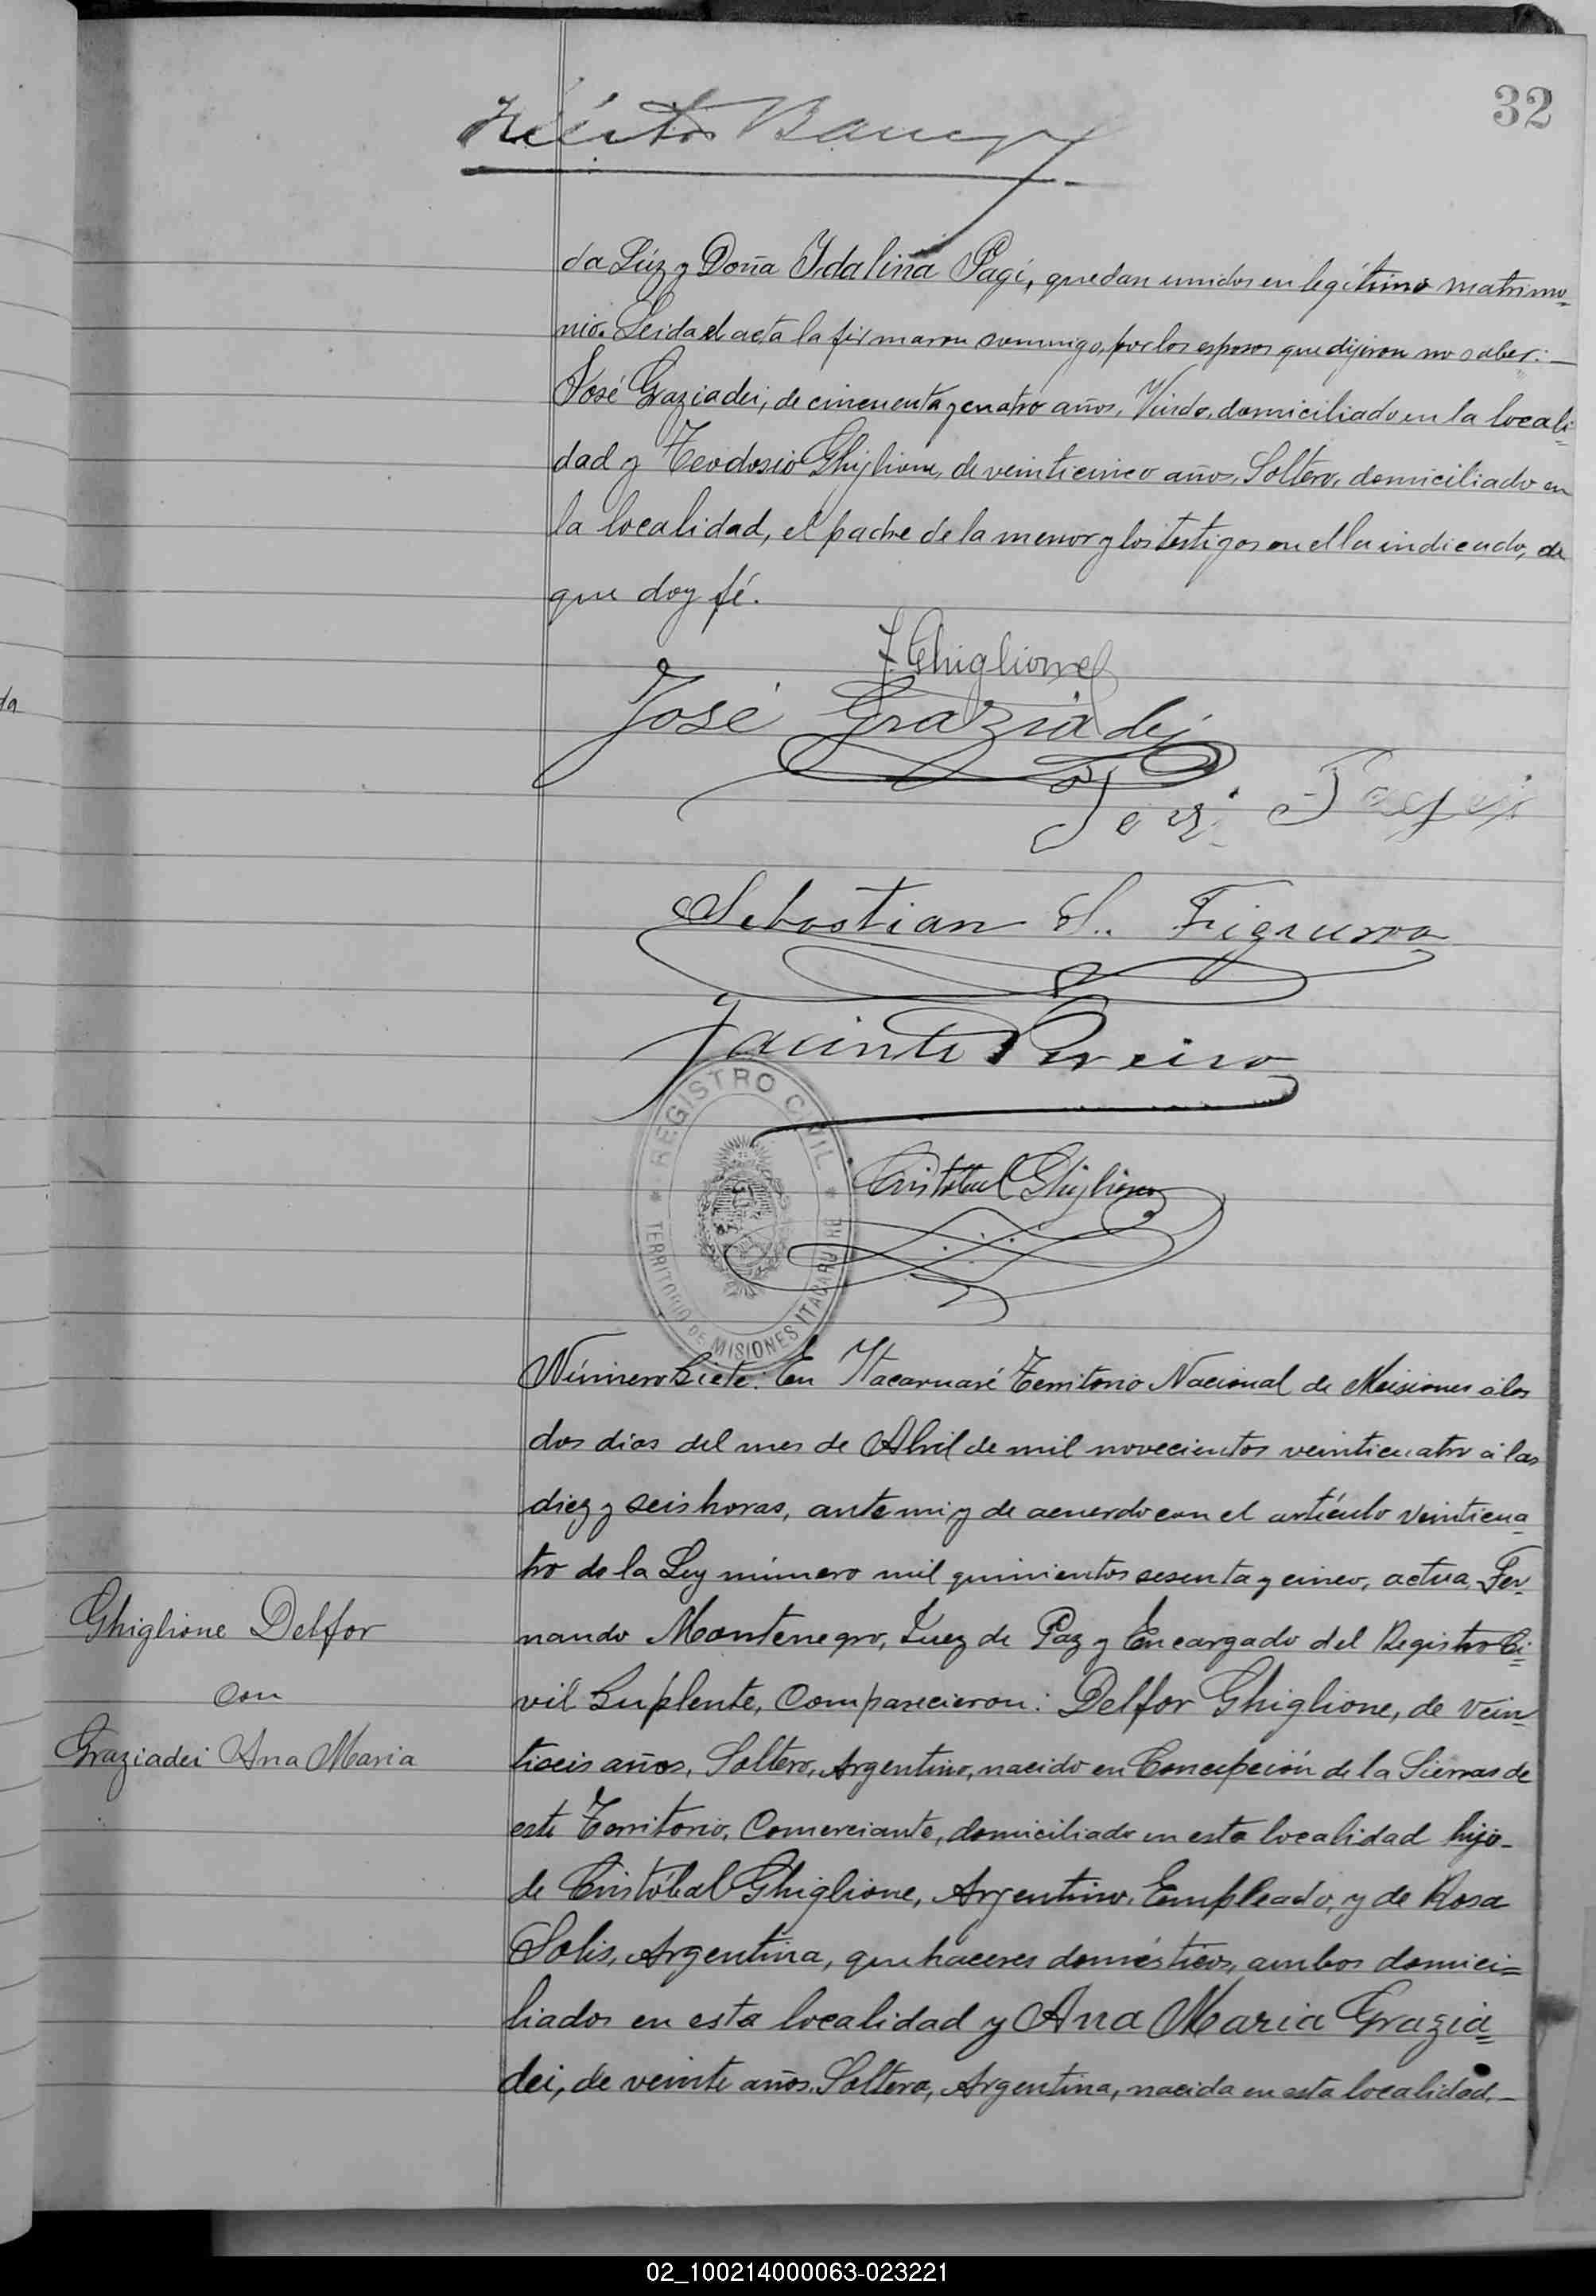 32
da Lúz y Doña Idalina Pagi, quedan unidos en legítimo matrimo=
nio. Leida el acta la firmaron conmigo, por los esposos que dijeron no saber:—
José Graziadei, de cincuenta y cuatro años, Viudo, domiciliado en la locali=
dad y Teodosio Ghiglione, de veinticinco años, Soltero, domiciliado en
la localidad, el padre de la menor y los testigos en ella indicado, de
que doy fé.
T. Ghiglione
José Graziadei
Sebastian S. Figueroa
Jacinto Pereira
REGISTRO CIVIL
TERRITORIO DE MISIONES ITACARUARE
Cristobal Ghiglione
Número Siete: En Itacaruaré Territorio Nacional de Misiones á los
dos dias del mes de Abril de mil novecientos veinticuatro á las
diez y seis horas, ante mi y de acuerdo con el artículo veinticua=
tro de la Ley número mil quinientos sesenta y cinco, actua, Fer=
nando Montenegro, Juez de Paz y Encargado del Registro Ci=
vil Suplente, Comparecieron: Delfor Ghiglione, de vein=
tiseis años, Soltero, Argentino, nacido en Concepción de la Sierra de
este Territorio, Comerciante, domiciliado en esta localidad hijo-
de Cristóbal Ghiglione, Argentino, Empleado, y de Rosa
Solis, Argentina, quehaceres domésticos, ambos domici=
liados en esta localidad y Ana Maria Grazia=
dei, de veinte años, Soltera, Argentina, nacida en esta localidad,—
Ghiglione Delfor
con
Graziadei Ana Maria
02_100214000063-023221